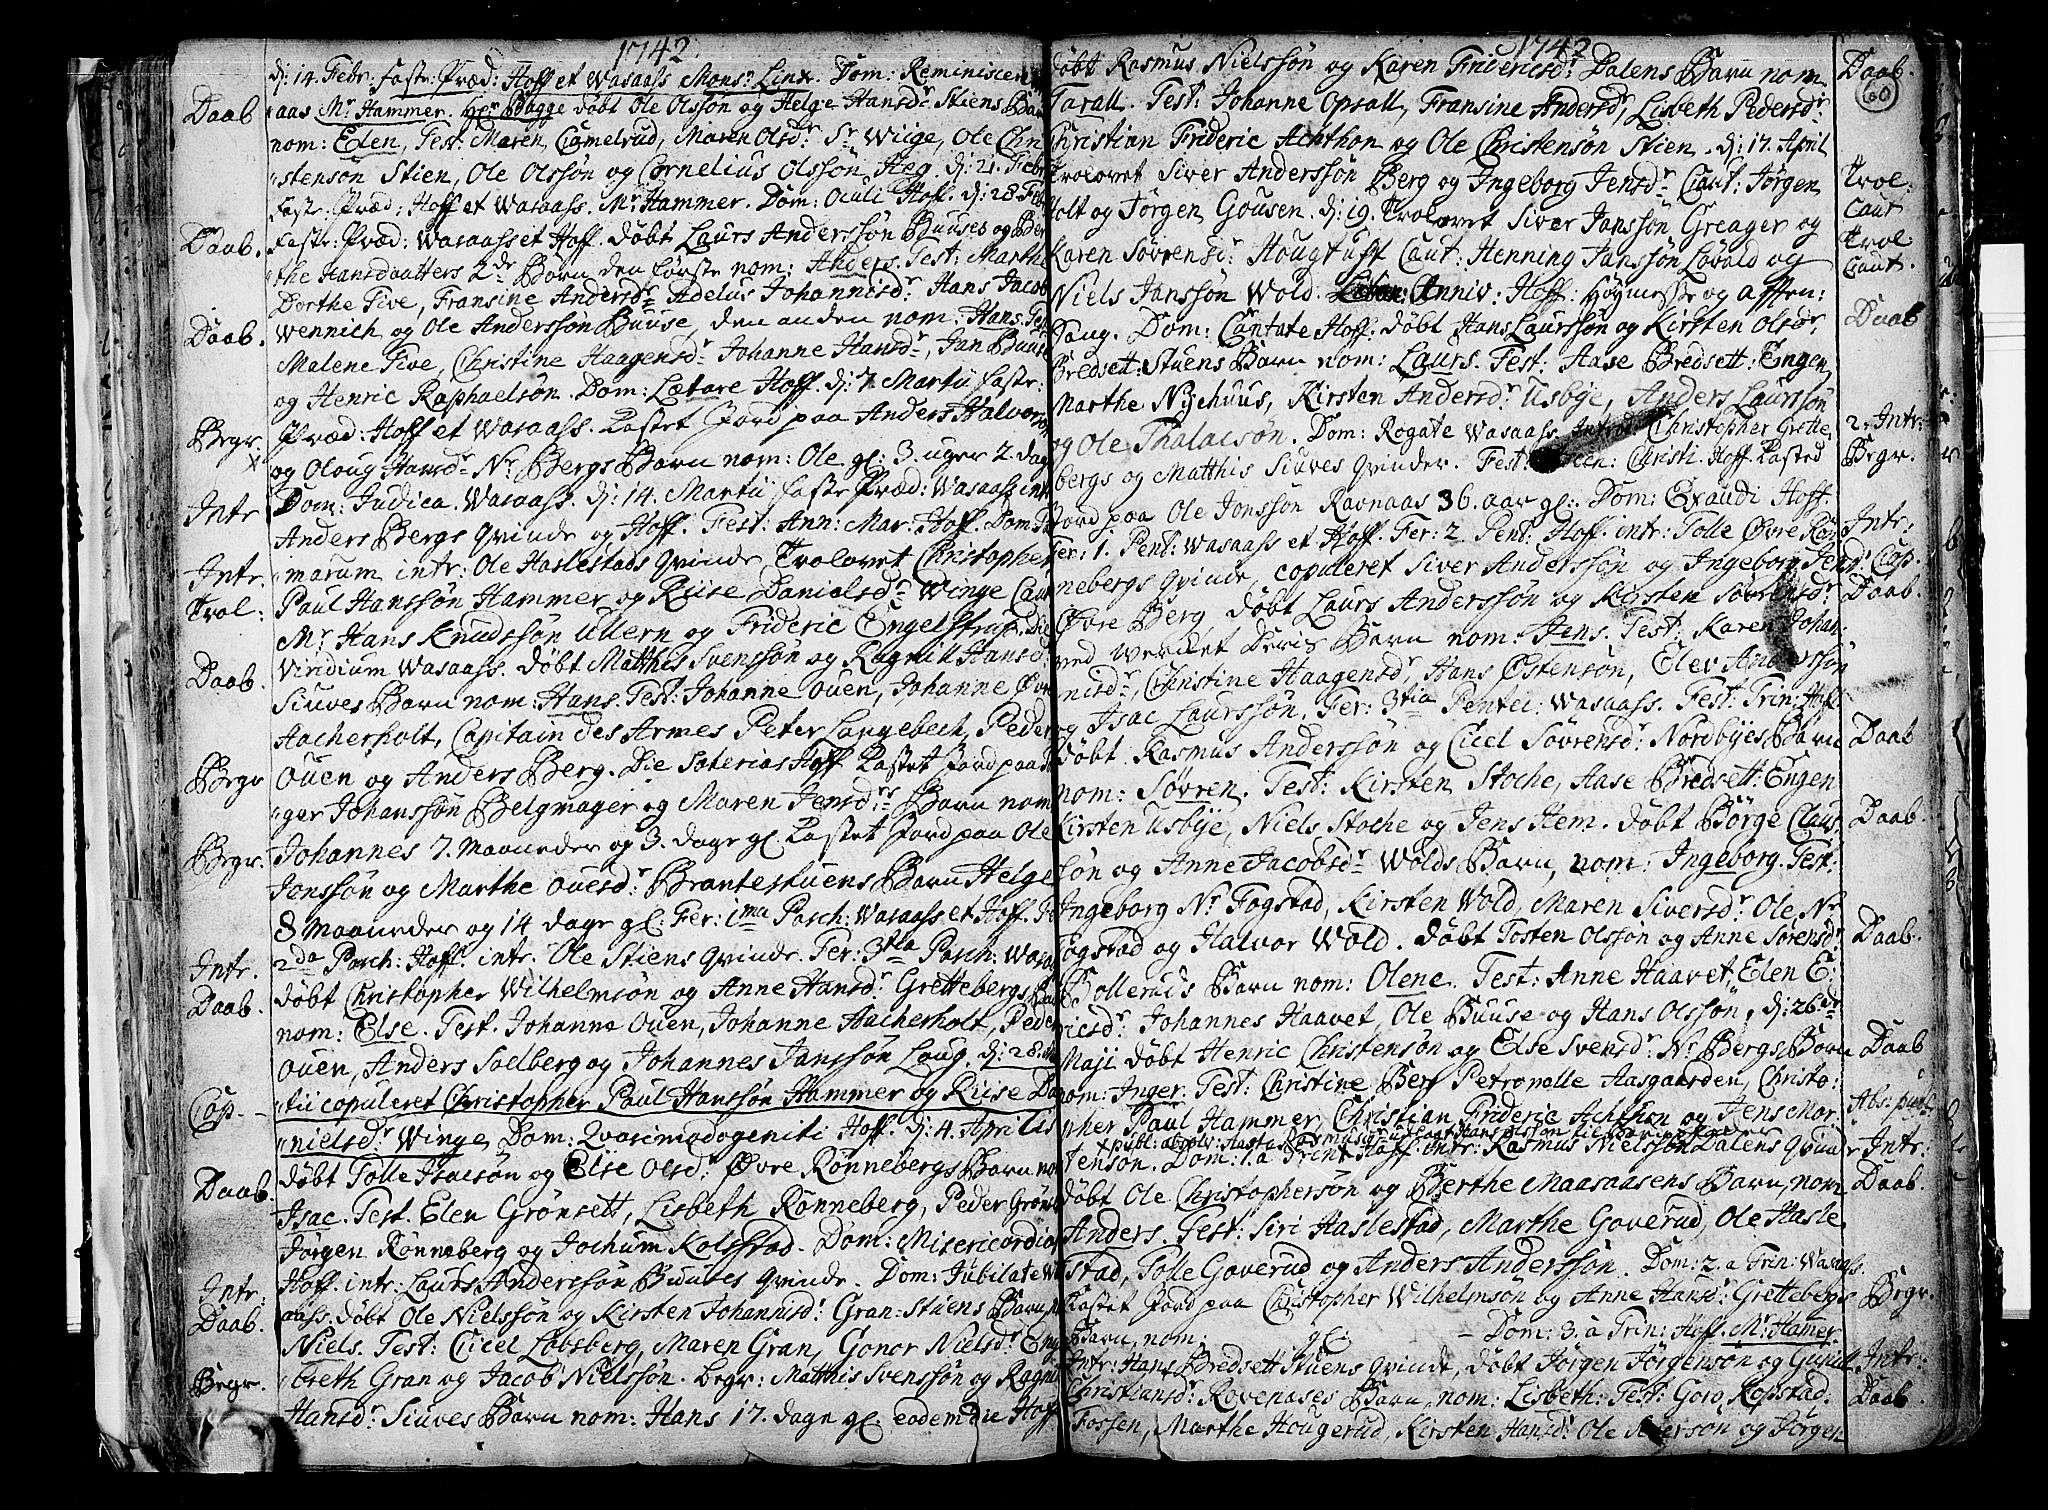 1742.
d: 14 Febr: Faste-Præd: Hoff et Wasaass Mons: Linx. Dom: Reminiscere
Daab aas Mr Hammer. Hr Bagge døbt Ole Olssøn og Helge Hansdr Stiens Barn
nom: Elen, Test: Maren Maren Olsdr Sr Wiige, Ole Chri
stensøn Stien, Ole Olssøn og Cornelius Olssøn Heg. d: 21. Febr
Faste-Præd: Hoff et Wasaass. Mr Hammer. Dom: Oculi Hoff. d: 28. Feb
Daab. Faste: Præd: Wasaass et Hoff. døbt Laurs Anderssøn Buuses og Ber
the Hansdaatters 2de Børn den første nom: Anders. Test: Marthe
Dorthe Five, Fransine Andersdr Adelus Johannisdr Hans Jacob
Daab. Wennich og Ole Anderssøn Buuse, den anden nom: Hans. Test
Malene Five, Christine Haagensdr Johanne Hansdr, Jan Buuse
og Henric Raphaelsøn. Dom: Lætare Hoff. d: 7. Martii Faste:
Begr. Præd: Hoff et Wasaass. Kastet Jord paa Anders Halvorsøn
og Oloug Hansdr Nr Bergs Barn nom: Ole gl: 3. uger 2. dage
Intr Dom: Judica. Wasaass. d: 14. Martii Faste Præd: Wasaass intr
Anders Bergs Qvinde og Hoff. Fest: Ann: Mar: Hoff. Dom: Pal
Intr. marum intr: Ole Haslestads Qvinde, Trolovet Christopher
Trol: Paul Hanssøn Hammer og Riise Danielsdr Winge Caut
Mr Hans Knudssøn Ullern og Frideric Engelstrup. Die
Daab. Viridium Wasaass. døbt Matthis Svenssøn og Ragnill Hansdr
Siuves Barn nom: Hans. Test: Johanne Ouen, Johanne Øvre
Aacherholt, Capitain des Armes Peter Langebech, Peder
Begr Ouen og Anders Berg. Die Soterias Hoff Kastet Jord paa
ger Johanssøn Belgmager og Maren Jensdrs Barn nom
Begr. Johannes 7. Maaneder og 3. dage gl. Kastet Jord paa Ole
Jonssøn og Marthe Ouesdr Brantestuens Barn Helge
8 Maaneder og 14 dage gl: Fer: 1ma Pasch: Wasaass et Hoff. Fe
Intr. 2da Pasch: Hoff. intr. Ole Stiens Qvinde. Fer: 3tia Pasch: Wasa
Daab. døbt Christopher Wilhelmsøn og Anne Hansdr Grettebergs Ba
nom: Else. Test. Johanne Ouen, Johanne Aacherholt, Peder
Ouen, Anders Soelberg og Johannes Janssøn Loug. d: 28. Ma
Cop. tii copuleret Christopher Paul Hanssøn Hammer og Riise Da
nielsdr Winge, Dom: Quasimodogeniti Hoff. d: 4. Aprilis
Daab. døbt Tolle Isacsøn og Else Olsdr Øvre Rønnebergs Barn no
Isac. Test. Elen Grønsett, Lisbeth Rønneberg, Peder Grøns
Jørgen Rønneberg og Jochum Kolstad. Dom: Misericordias
Intr: Hoff. intr: Laurs Anderssøn Buuses Qvinde. Dom: Jubilate Wa
Daab. aass. døbt Ole Nielssøn og Kirsten Johannisdr Gran-Stuens Barn n
Niels. Test: Cicel Løbsberg, Maren Gran, Gonor Nielsdr Eng
Begr. breth Gran og Jacob Nielssøn. begr: Matthis Svenssøn og Ragni
Hansdr Siuves Barn nom: Hans 17. dage gl. eodem die Hoff
1742
døbt Rasmus Nielssøn og Karen Fridericsdr Dalens Barn nom Daab.
Tarall. Test: Johanne Opsall, Fransine Andersdr, Lisbeth Pedersdr 60
Christian Frideric Achthon og Ole Christensøn Stien. d: 17. April
Trolovet Siver Anderssøn Berg og Ingeborg Jensdr Caut: Jørgen Trol:
Holt og Jørgen Gousen. d: 19. Trolovet Siver Janssøn Greager og Caut
Karen Søvrensdr Hougtuft Caut: Henning Janssøn Løvald og Trol
Niels Janssøn Wold. Anniv: Hoff: Høymesse og Afften: Caut.
Sang. Dom: Cantate Hoff. døbt Hans Laurssøn og Kirsten Olsdr Daab
Bredsett-Stuens Barn nom: Laurs. Test: Aase Bredsett-Engen
Marthe Nyehuus, Kirsten Andersdr Usbye, Anders Laurssøn
og Ole Thalacsøn. Dom: Rogate Wasaass. Introd: Christopher Grette 2. Intr:
bergs og Matthis Siuves Qvinder. Fest: Ascen: Christi. Hoff. Kasted Begr.
Jord paa Ole Jonssøn Ravnaas 36. aar gl: Dom: Exaudi Hoff.
Fer: 1. Pent: Wasaass et Hoff. Fer: 2. Pent: Hoff. intr: Tolle Øvre Røn Intr:
nebergs Qvinde, copuleret Siver Anderssøn og Ingeborg Jensdr Cop.
Øvre Berg døbt Laurs Anderssøn og Kirsten Søvrensdr Daab.
ved Werchet Deris Barn nom: Jens. Test: Karen Johan
nisdr, Christine Haagensdr, Hans Østensøn, Elev Anderssøn
og Isac Laurssøn. Fer: 3tia Pentec: Wasaass. Fest: Trin: Hoff.
døbt Rasmus Anderssøn og Cicel Søvrensdr Nordbyes Barn Daab
nom: Søvren. Test: Kirsten Stoche, Aase Bredsett-Engen
Kirsten Usbye, Niels Stoche og Jens Hem. døbt Børge Claus Daab.
søn og Anne Jacobsdr Wolds Barn, nom: Ingeborg. Test:
Ingeborg Nr Fogstad, Kirsten Wold, Maren Siversdr Ole Nr
Fogstad og Halvor Wold. døbt Tosten Olssøn og Anne Sørensdr Daab.
Bolleruds Barn nom: Olene. Test: Anne Haavet, Elen E:
ricsdr Johannes Haavet, Ole Buuse og Hans Olssøn, d: 26de
Maji døbt Henric Christensøn og Else Svensdr Nr Bergs Barn Daab
nom: Inger. Test: Christine Berg Petronelle Aasgaarden, Christo:
pher Paul Hammer, Christian Frideric Achthon og Jens Mor Abs: publ:
x publ: absolv: Aasta Rasmusdr
tenson. Dom: 1. a Trin: Hoff. intr: Rasmus Nielssøn Dalens Qvinde Intr:
døbt Ole Christophersøn og Berthe Maasaasens Barn, nom Daab.
Anders. Test: Siri Haslestad, Marthe Goverud, Ole Hasle
stad, Tolle Goverud og Anders Anderssøn. Dom: 2. a Trin: Wasaas.
Kastet Jord paa Christopher Wilhelmsøn og Anne Hansdr Grettebergs Begr.
Barn, nom: gl: - Dom: 3. a Trin: Hoff. Mr Hamer
Intr: Hans Bredsett Stuens Qvinde, døbt Jørgen Jørgensøn og Gunill Intr:
Christiansdr Rovenases Barn, nom: Lisbeth: Test: Goro Kopstad. Daab
Fossen, Marthe Hougerud, Kirsten Hansdr Ole Iversøn og Jørgen